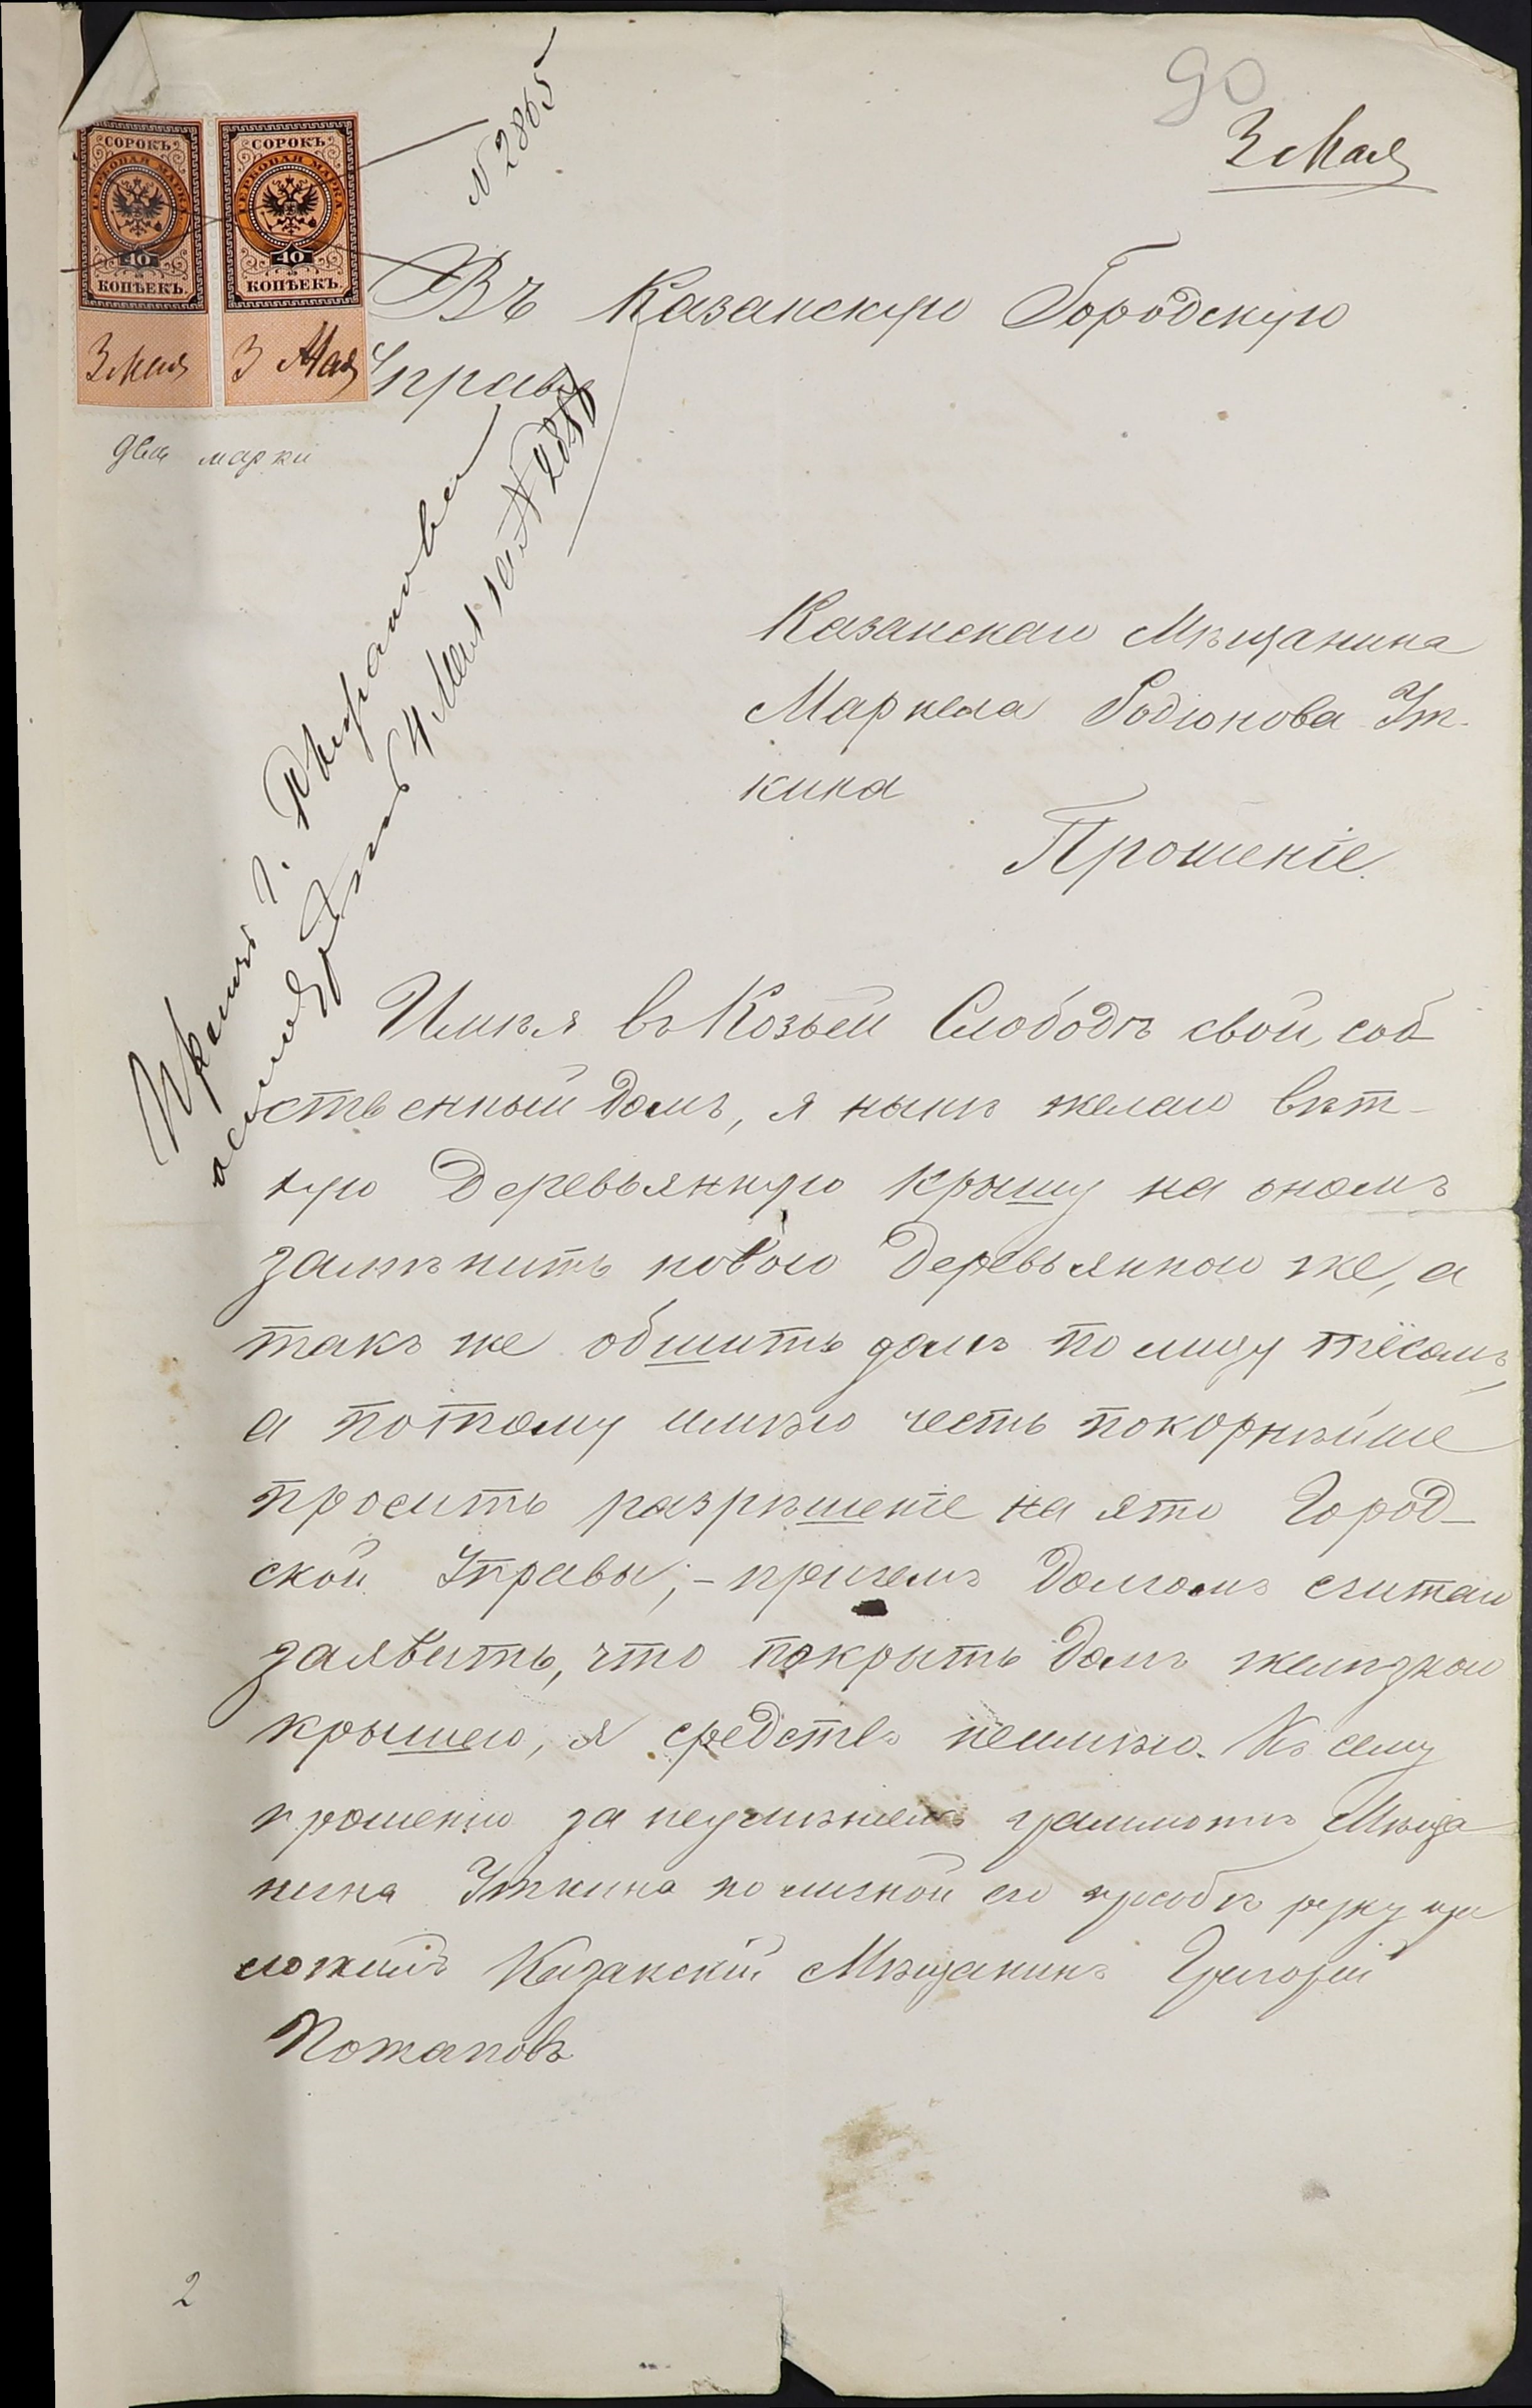 90
3 Мая
N 2865
СОРОКЪ СОРОКЪ
ГЕРБОВАЯ МАРКА ГЕРБОВАЯ МАРКА
40 40
КОПѢЕКЪ. КОПѢЕКЪ.
3 мая 3 Мая
двѣ марки
Въ Казанскую Городскую
Управу
Казанскаго Мѣщанина
Маркела Родіонова Ут-
кина
Прошеніе.
Имѣя въ Козьей Слободѣ свой, соб
ственный домъ, я нынѣ желаю вѣт-
хую деревьянную крышу на ономъ
замѣнить новою деревьянною же, а
такъ же обшить домъ по лицу тёсомъ,
а потому имѣю честь покорнѣйше
просить разрѣшеніе на ято Город-
ской Управы; - причемъ долгомъ считаю
заявить, что покрыть домъ желѣзною
крышею, я средствъ неимѣю. Къ сему
прошенію за неумѣнiемъ граммотѣ Мѣща
нина Уткина по личной его прозбѣ руку при
ложилъ Казанскій Мѣщанинъ Григорій
Потаповъ
Прошу г.
4 Мая N
2